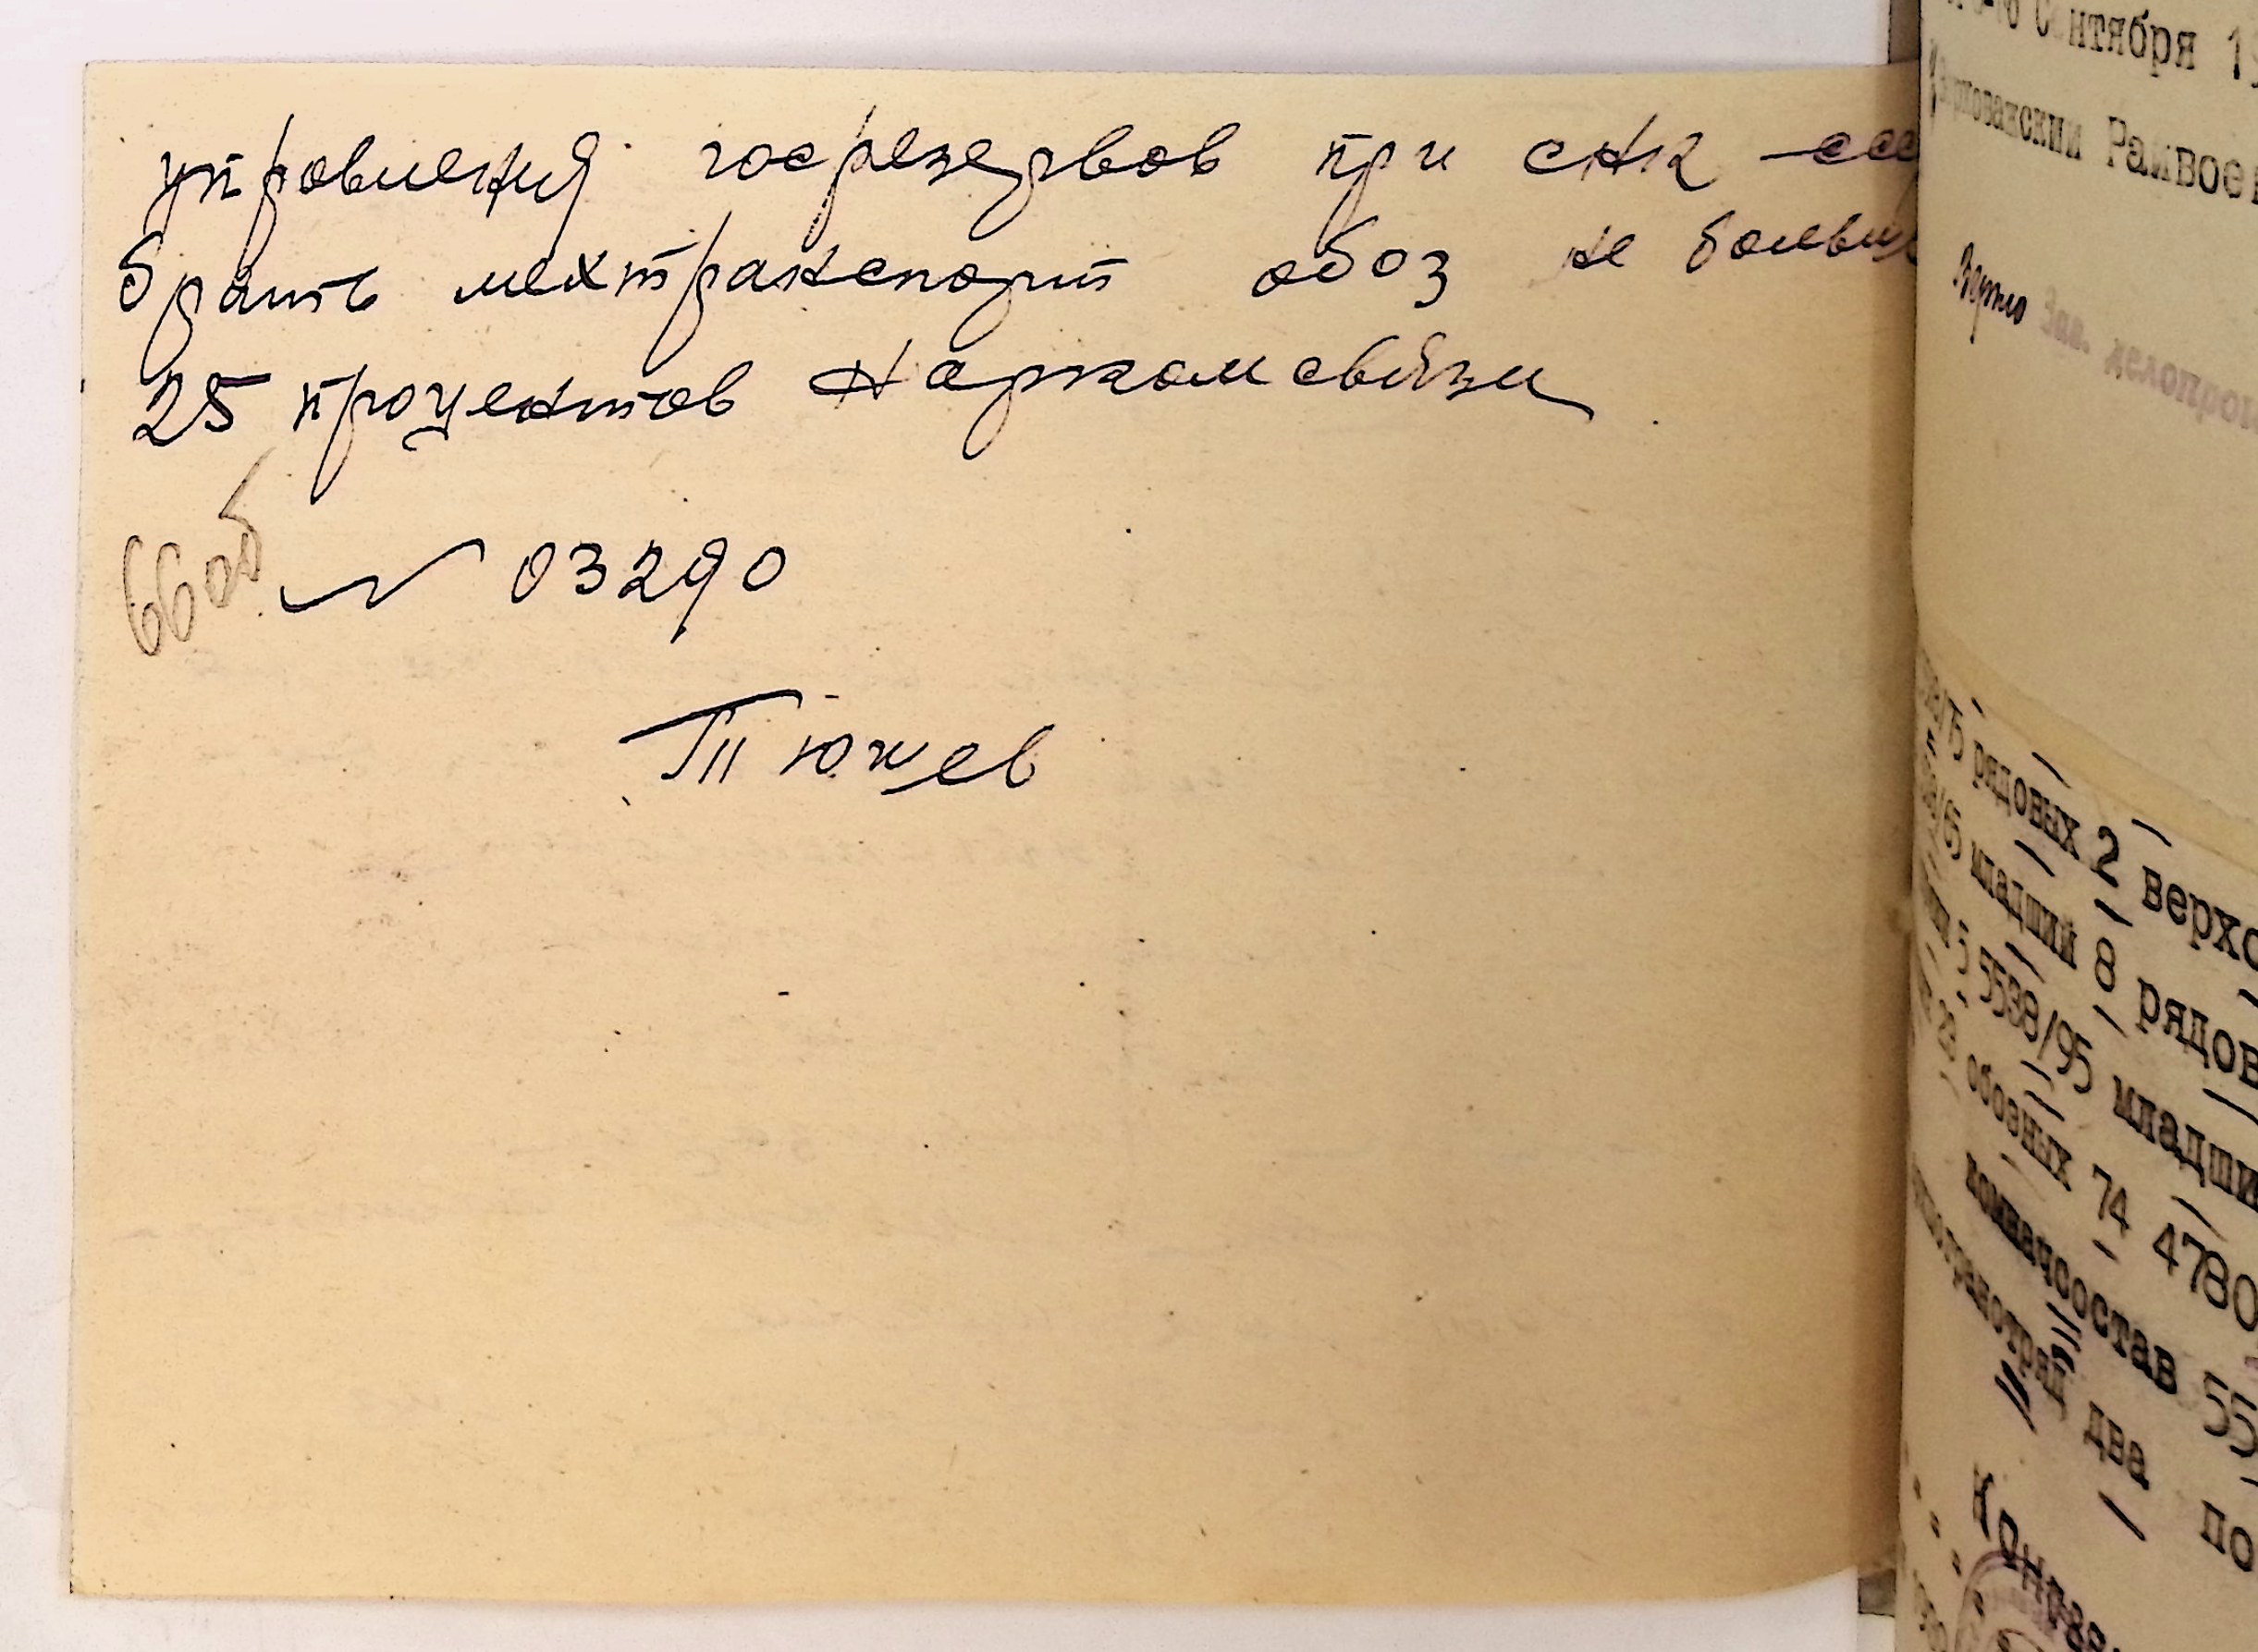 управления госрезервов при снк ссс
брать мехтранспорт обоз не больш
25 процентов наркомсвязи
66об
№ 03290
Тюжев
нтября
Райвоен
Зав. делопрои
рядовых 2 верхо
младший 8 рядов
5538/95 младши
обозных 74 4780
комначсостав 55
два по